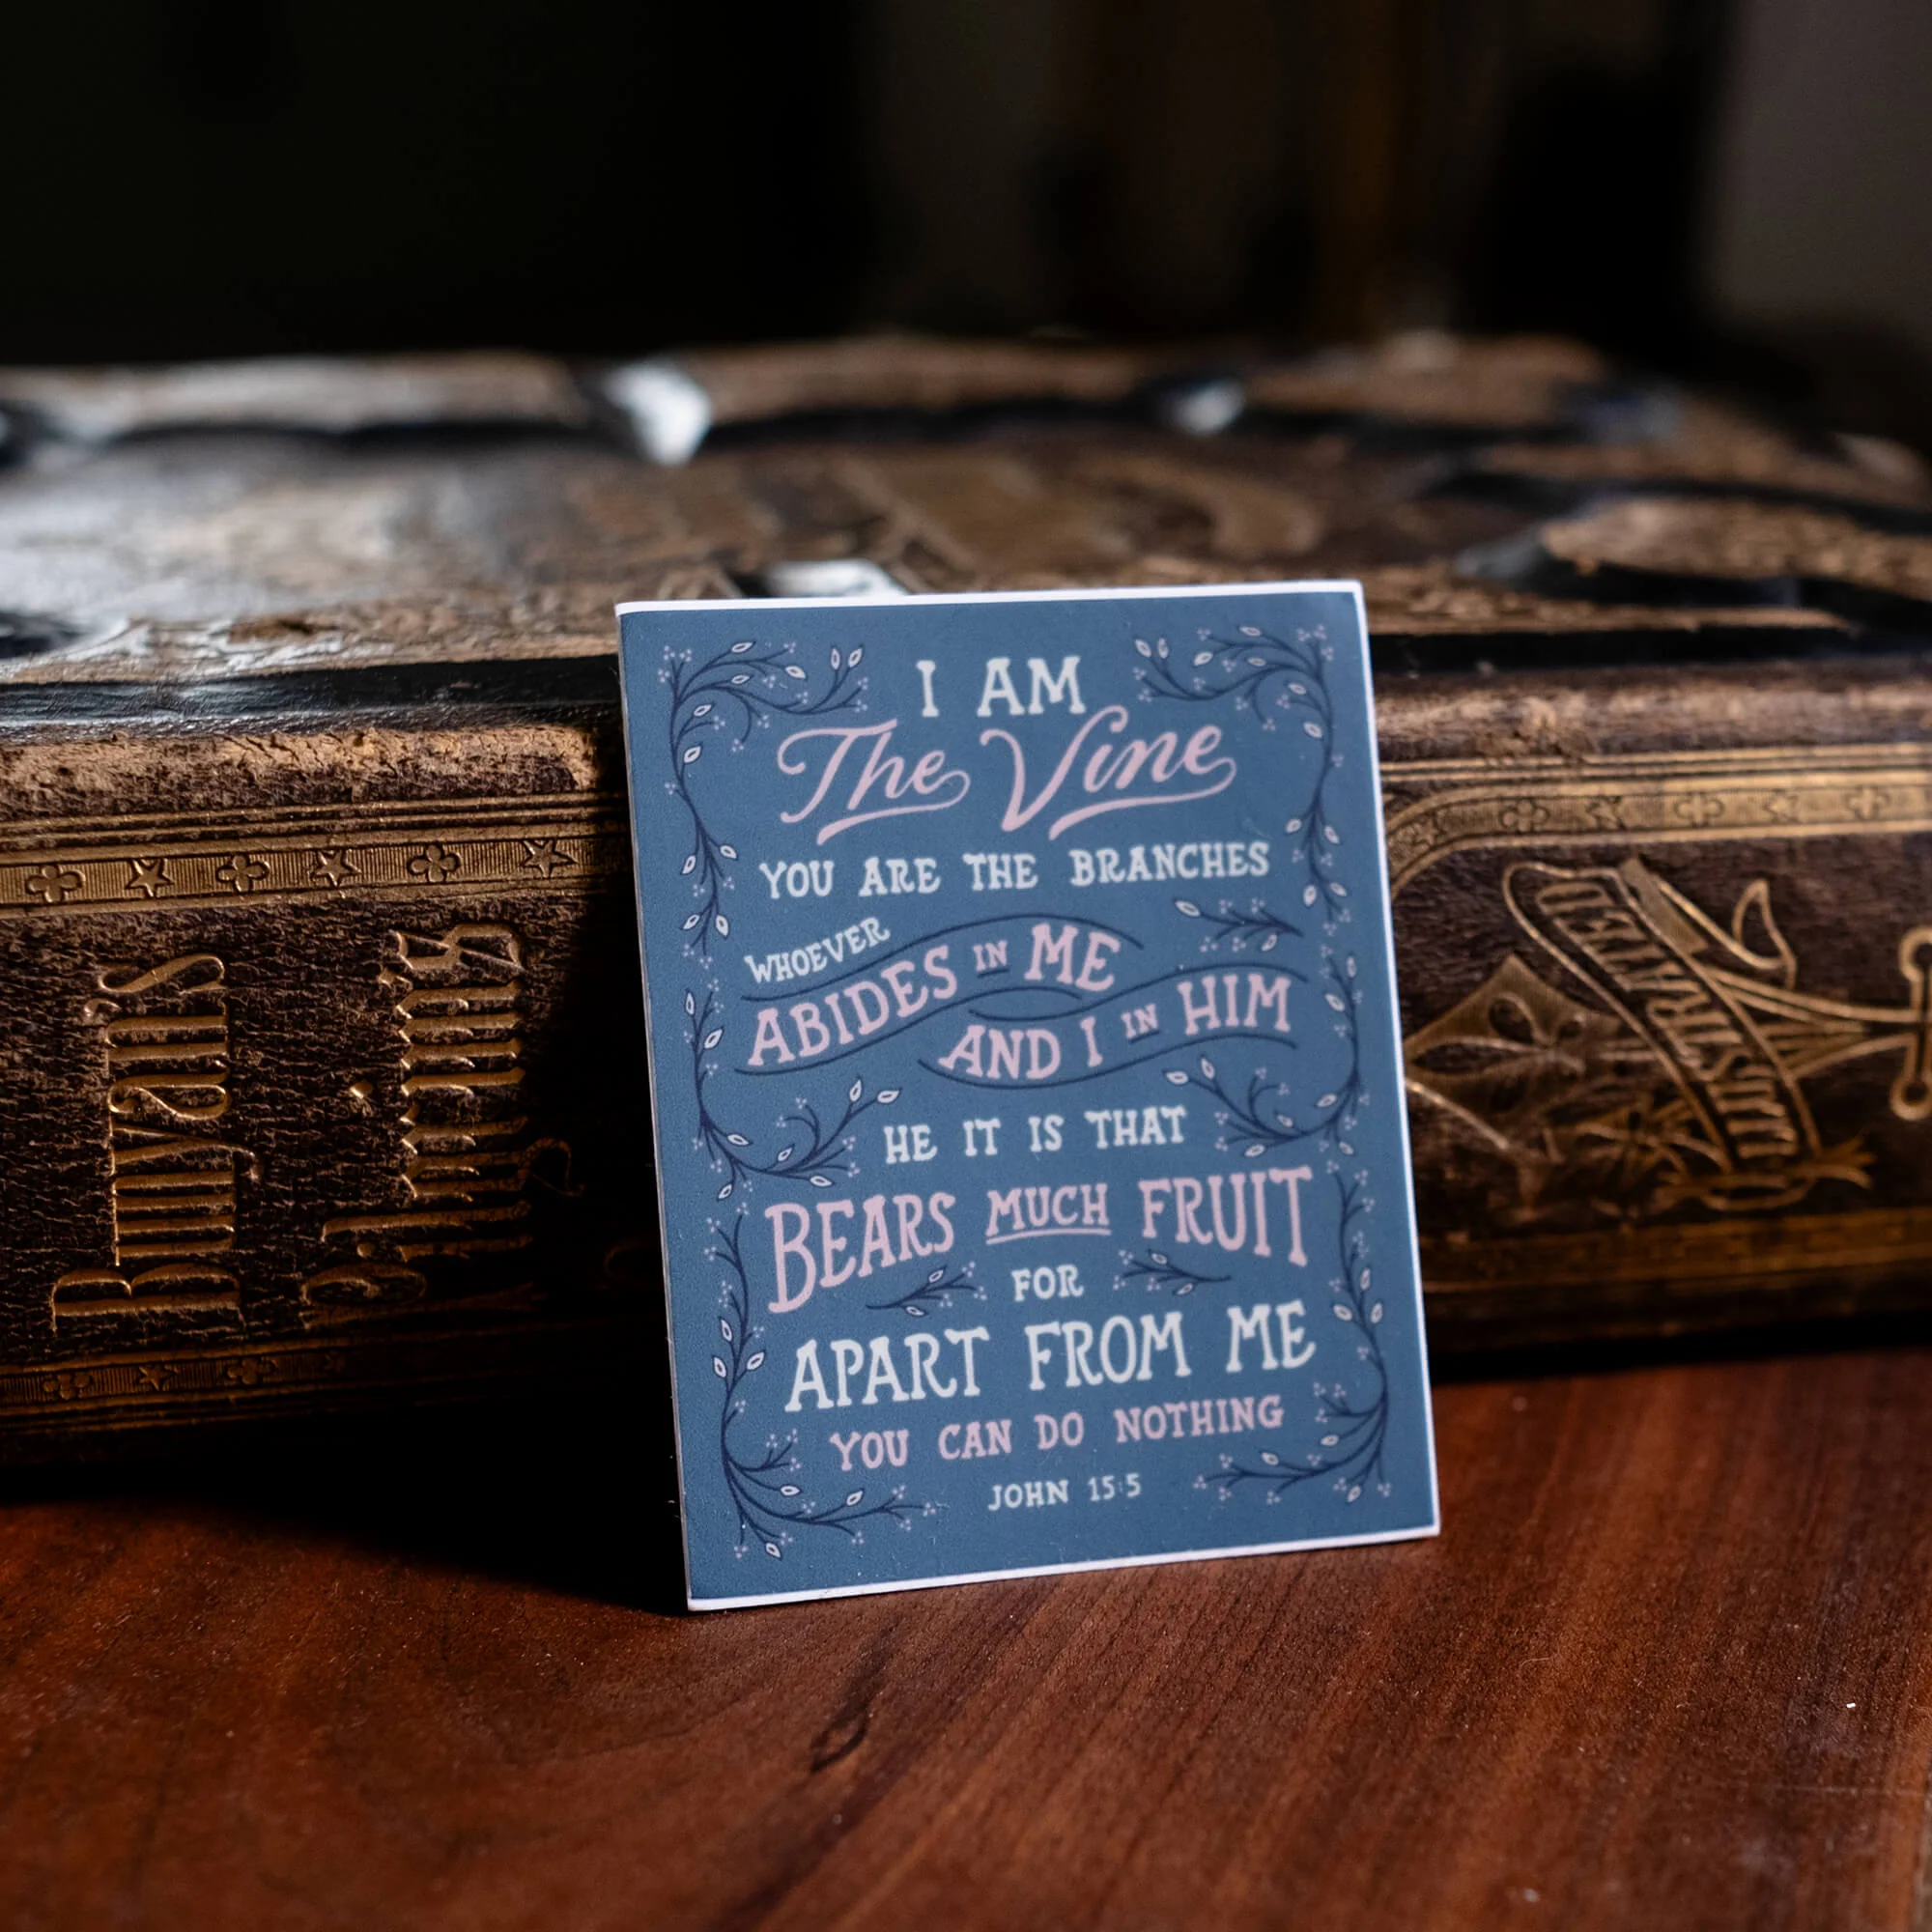 I AM
The Vine
YOU ARE THE BRANCHES
WHOEVER
ABIDES IN ME
AND I IN HIM
HE IT IS THAT
BEARS MUCH FRUIT
FOR
APART FROM ME
YOU CAN DO NOTHING
JOHN 15:5
Bunyan's
Pilgrim's
ILLUSTRATED